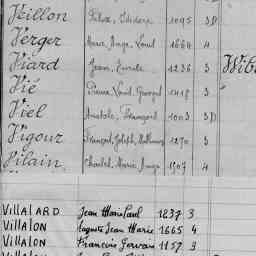 Veillon Félix, Isidore 1095 3D
Verger Marie, Ange, Louis 1664 4
Viard Jean, 1236 3
Vié Pierre, Louis, Georges 1418 3
Viel Anatole, François 1003 3D
Vigour François, Joseph, 1290 3
Vilain Charles, Marie, Ange 1507 4
VILLALARD Jean Marie Paul 1237 3
VILLALON Auguste Jean Marie 1665 4
VILLALON Francois Gervais 1157 3